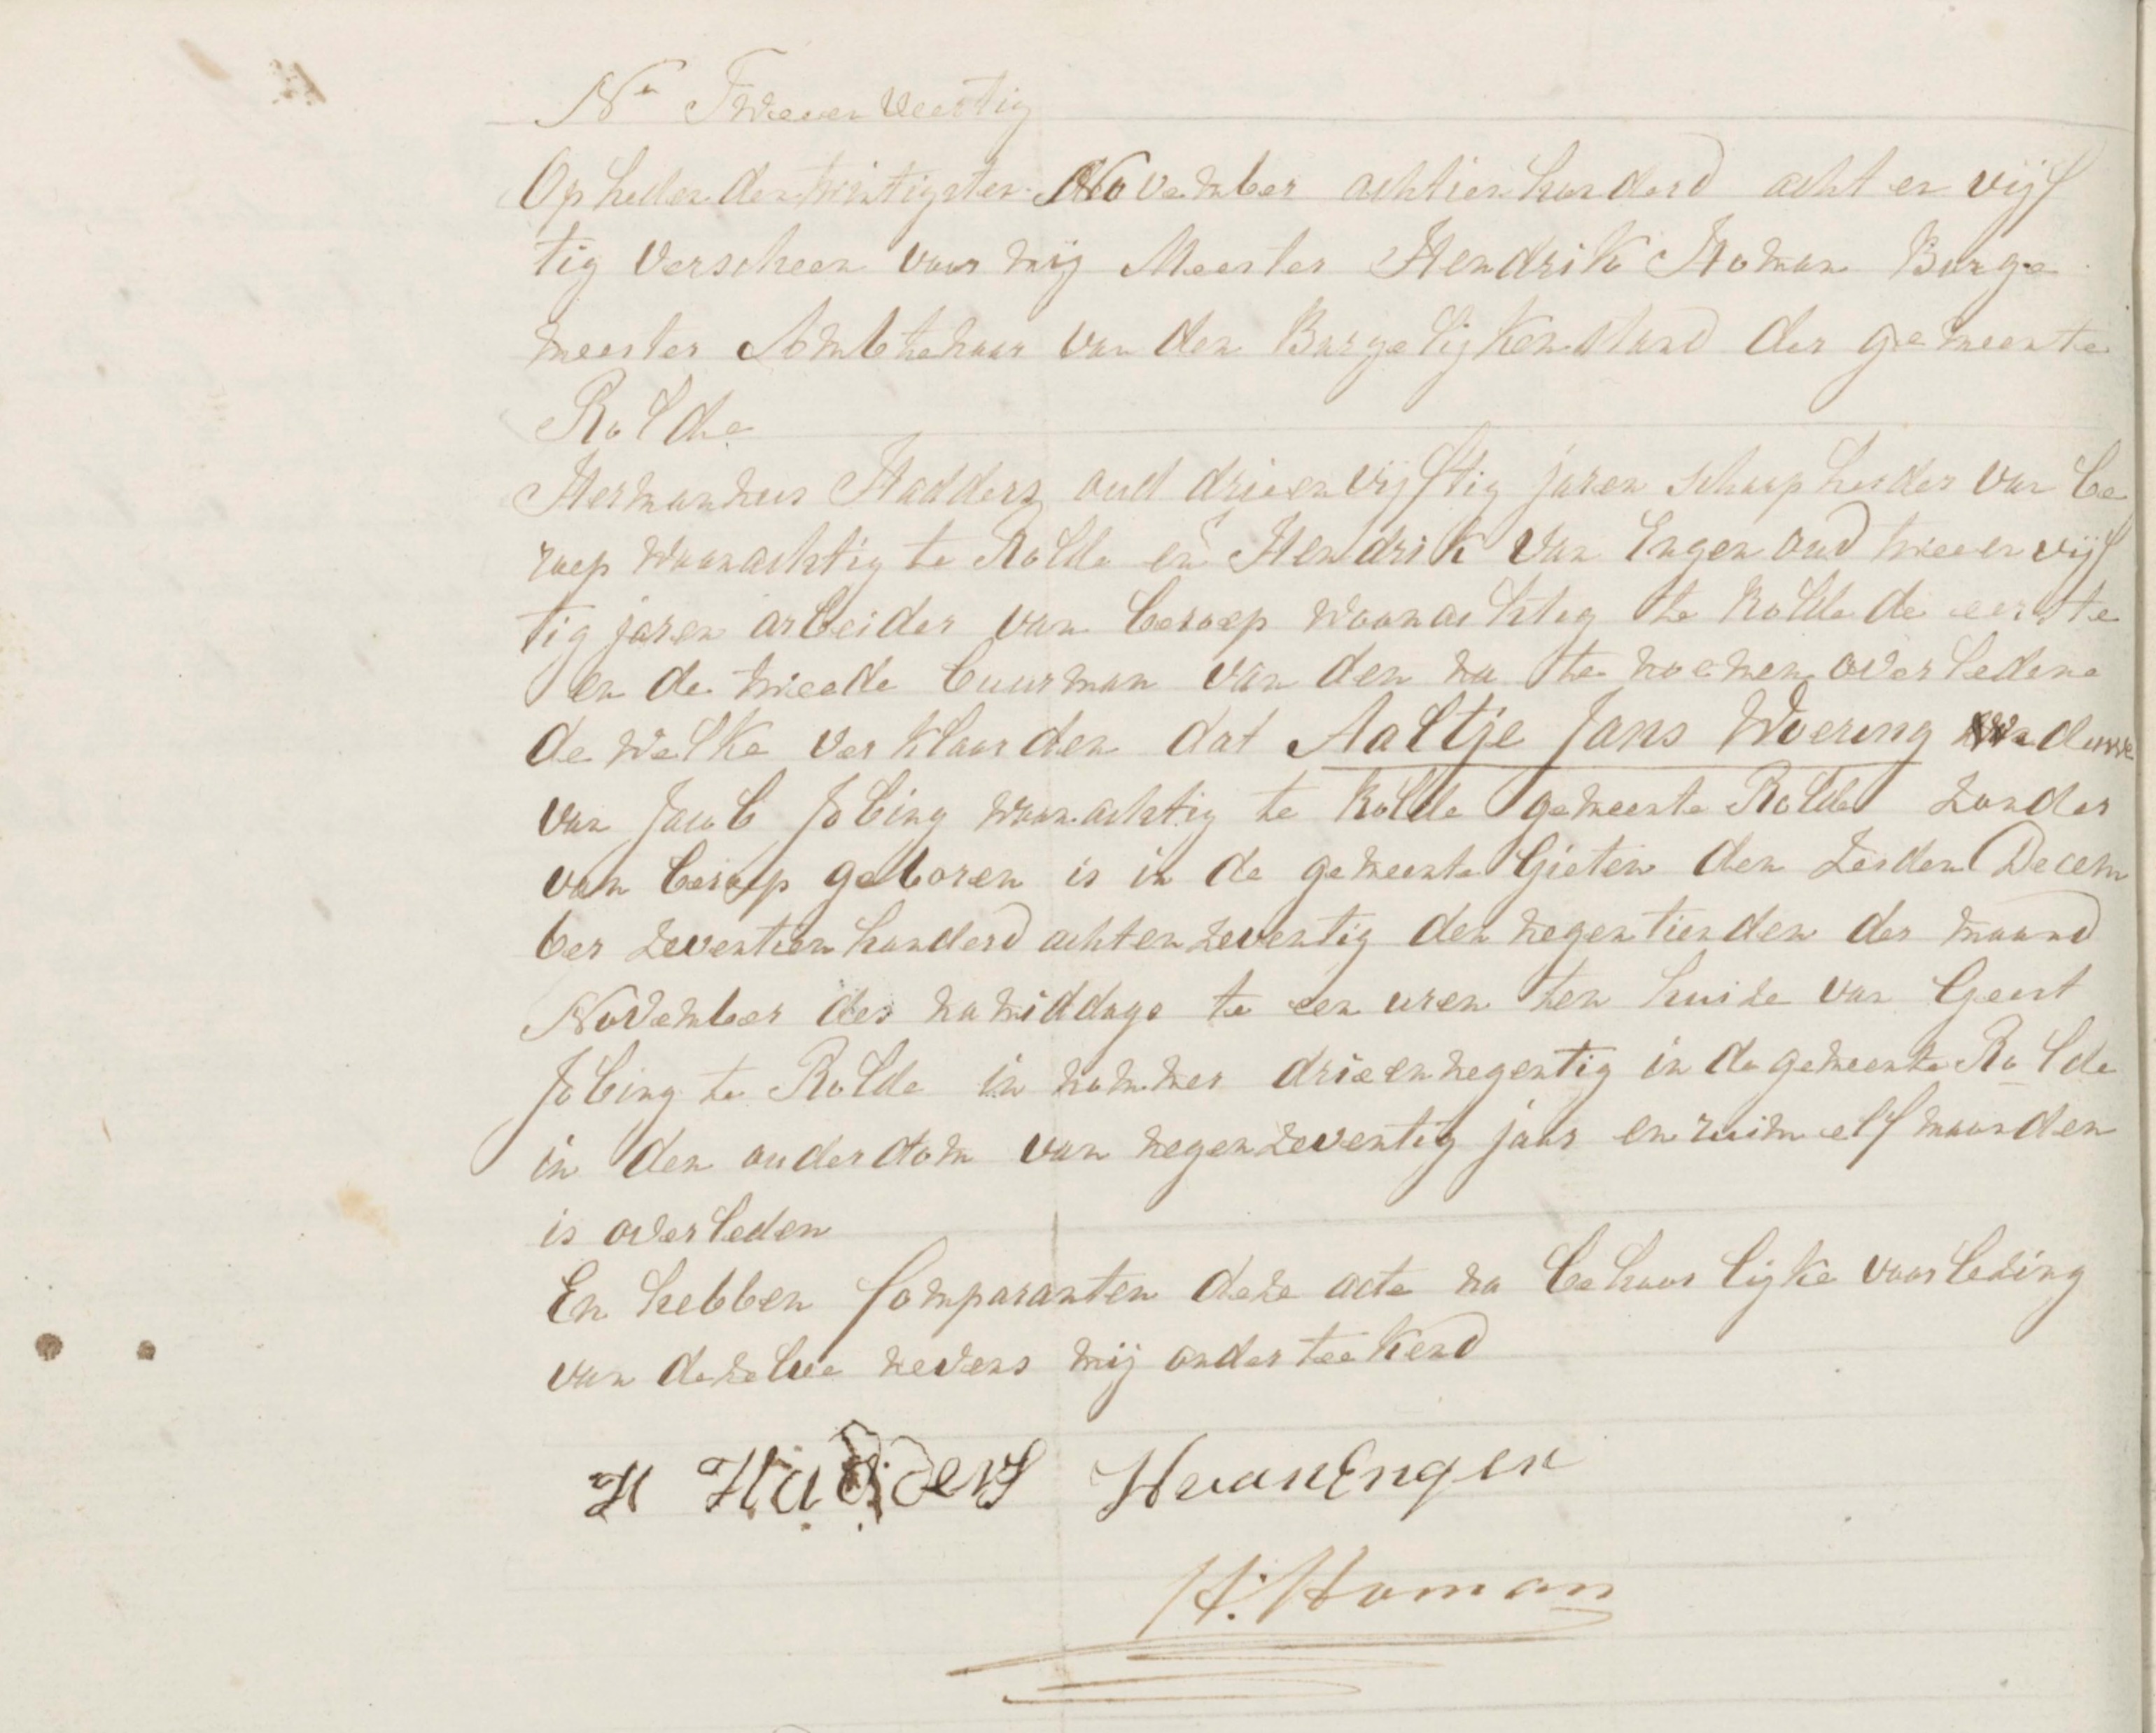 No Tweeenveertig
Op heden den twintigsten November achtienhonderd acht en vijf
tig verscheen voor mij Meester Hendrik Homan Burge
meester Ambtenaar van den Burgelijkenstand der gemeente
Rolde
Hermannus Hadders oud drieenvijftig jaren schaapherder van be
roep woonachtig te Rolde en Hendrik van Engen oud tweeenvijf
tig jaren arbeider van beroep woonachtig te Rolde de eerste
en de tweede buurman van den na te noemen overledene
dewelke verklaarden dat Aaltje Jans Woering weduwe
van Jacob Jobing woonachtig te Rolde gemeente Rolde zonder
van beroep geboren is in de gemeente Gieten den zesden Decem
ber zeventienhonderd achtenzeventig den negentienden der maand
November des namiddags te een uren ten huize van Geert
Jobing te Rolde in nommer drieennegentig in de gemeente Rolde
in den ouderdom van negenzeventig jaar en ruim elf maanden
is overleden
En hebben Comparanten deze acte na behoorlijke voorlezing
van dezelve nevens mij onderteekend
H Hadders HvanEngen
H. Homan